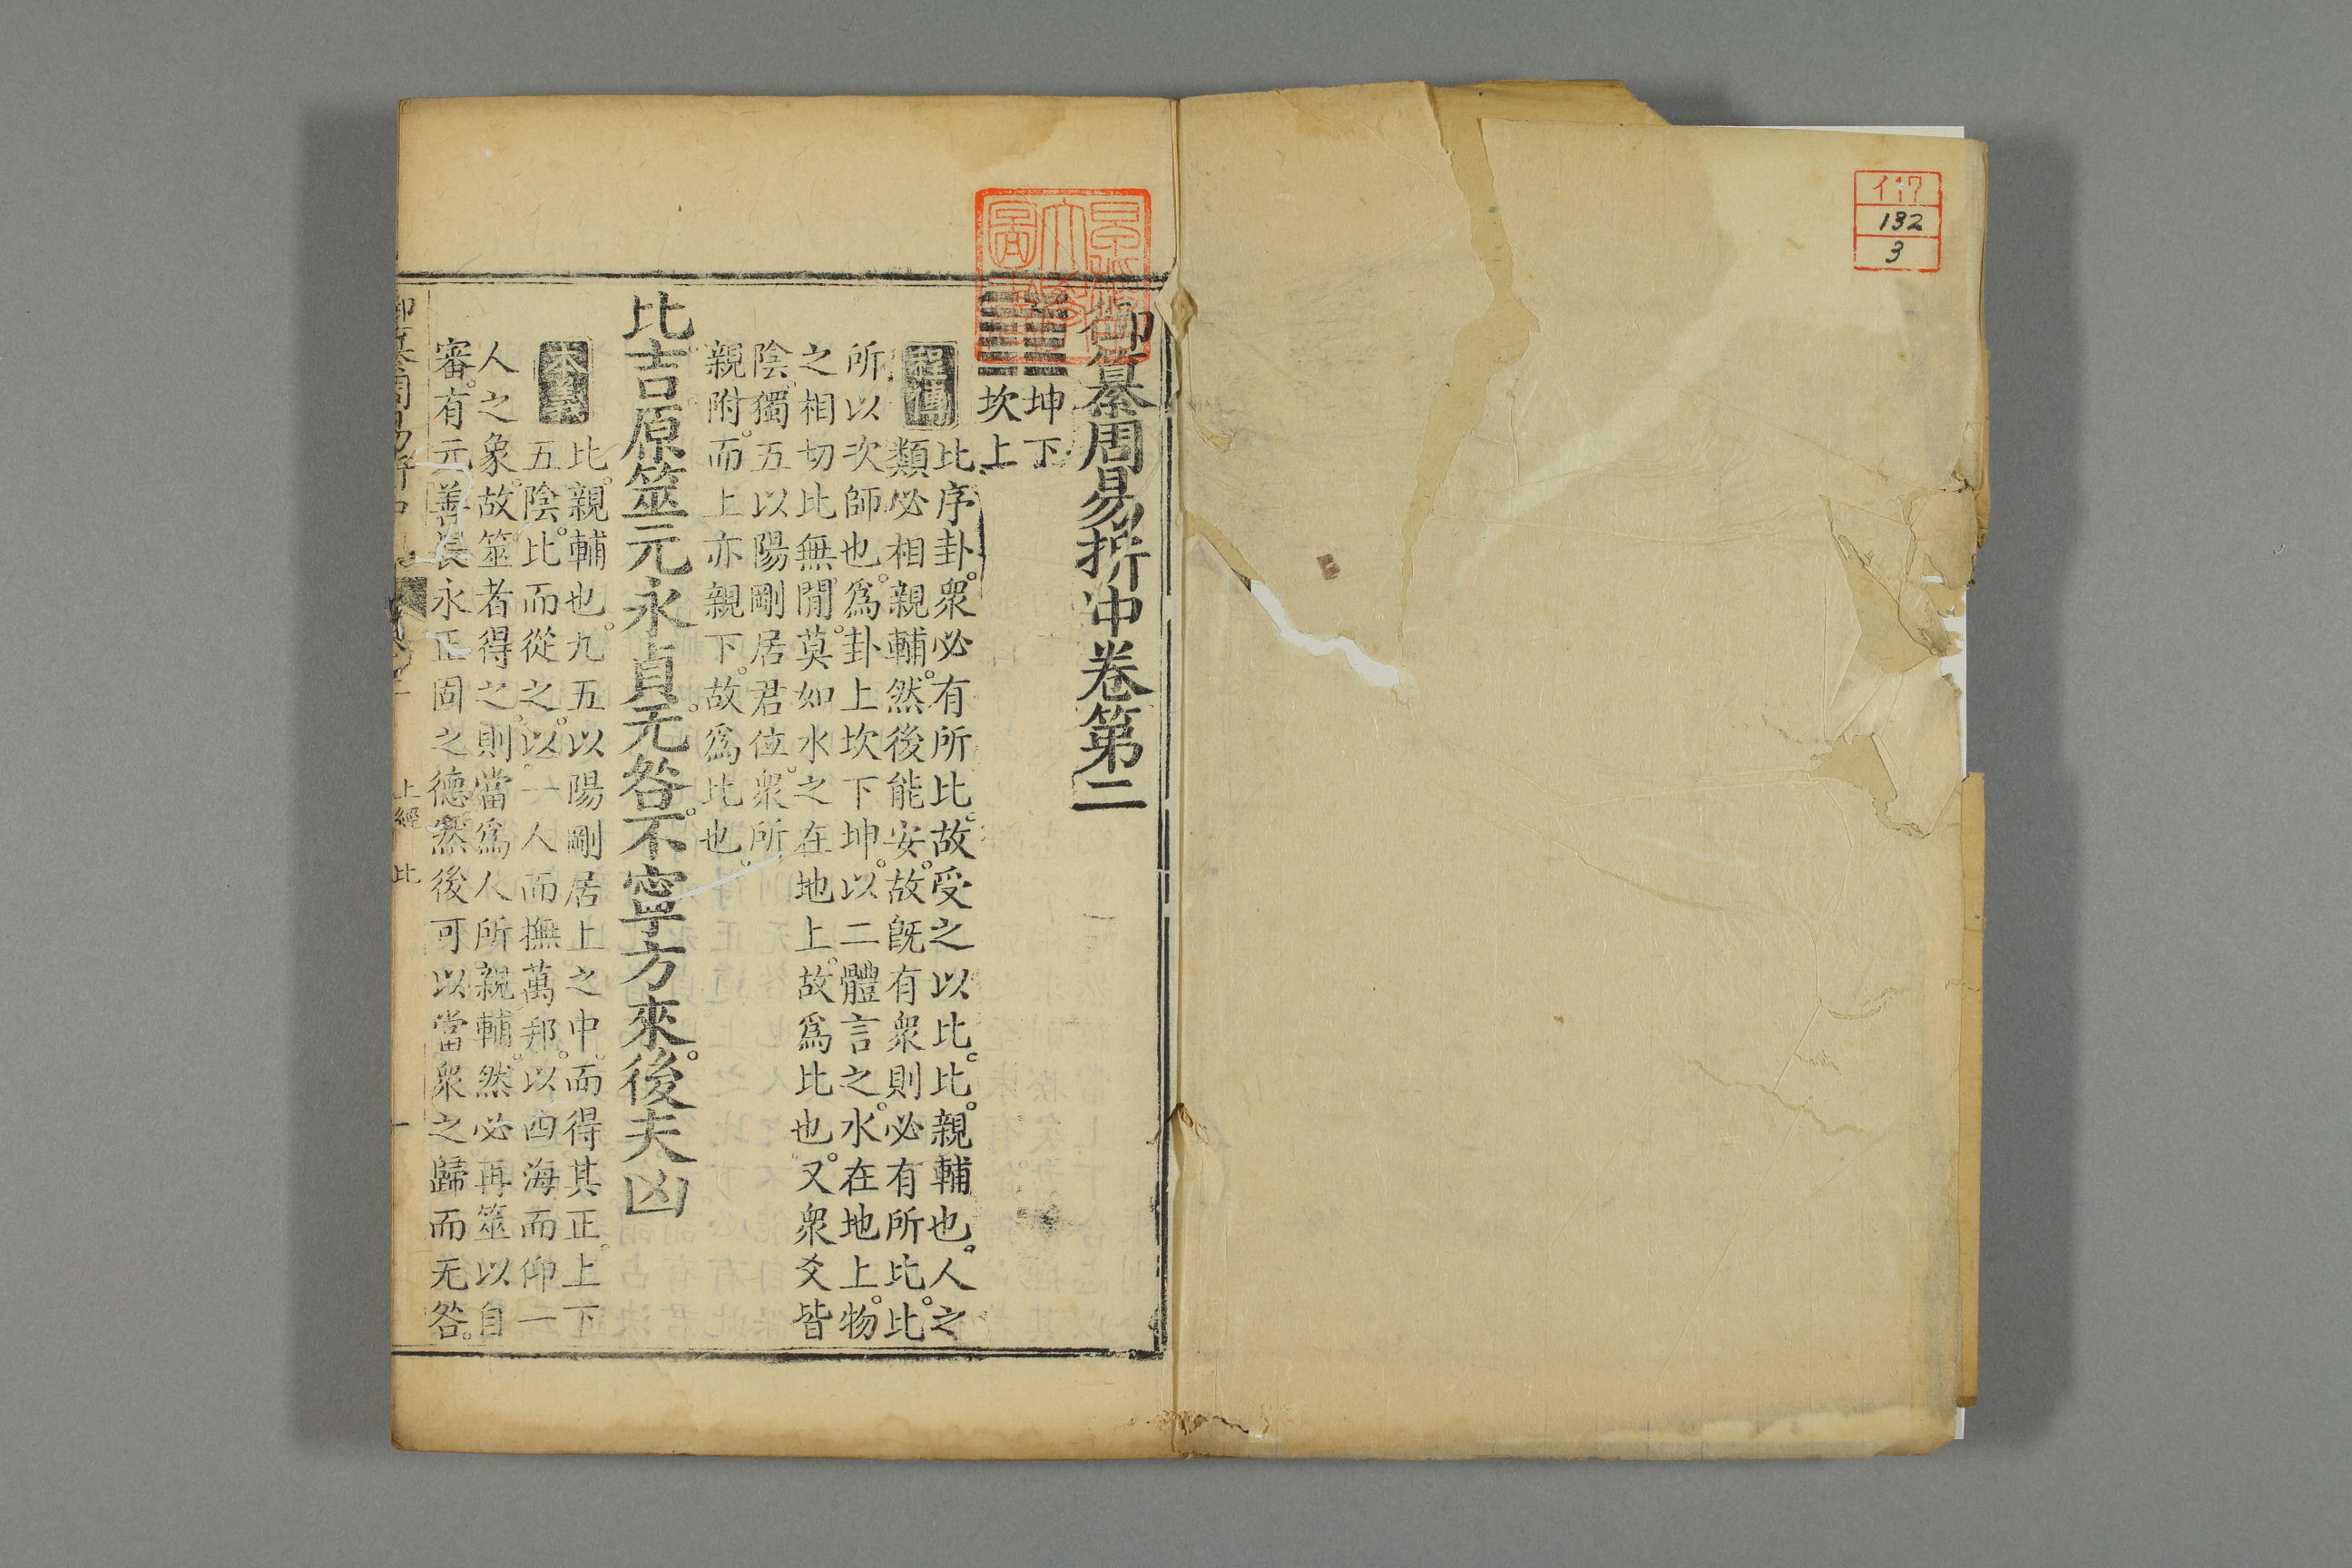 イ17
132
3
御纂周易折中卷第二
坤下
坎上
程傳
比。序卦。衆必有所比。故受之以比。比。親輔也。人之
類必相親輔。然後能安。故旣有衆則必有所比。比
所以次師也。爲卦上坎下坤。以二體言之。水在地上。物
之相切比無閒。莫如水之在地上。故爲比也。又衆爻皆
陰。獨五以陽剛居君位。衆所
親附。而上亦親下。故爲比也。
比吉。原筮元永貞。无咎。不寧方來。後夫凶
本義
比。親輔也。九五以陽剛居上之中。而得其正。上下
五陰。比而從之。以一人而撫萬邦。以四海而仰一
人之象。故筮者得之。則當爲人所親輔。然必再筮以自
審。有元善長永正固之德。然後可以當衆之歸而无咎。
上經 比 一